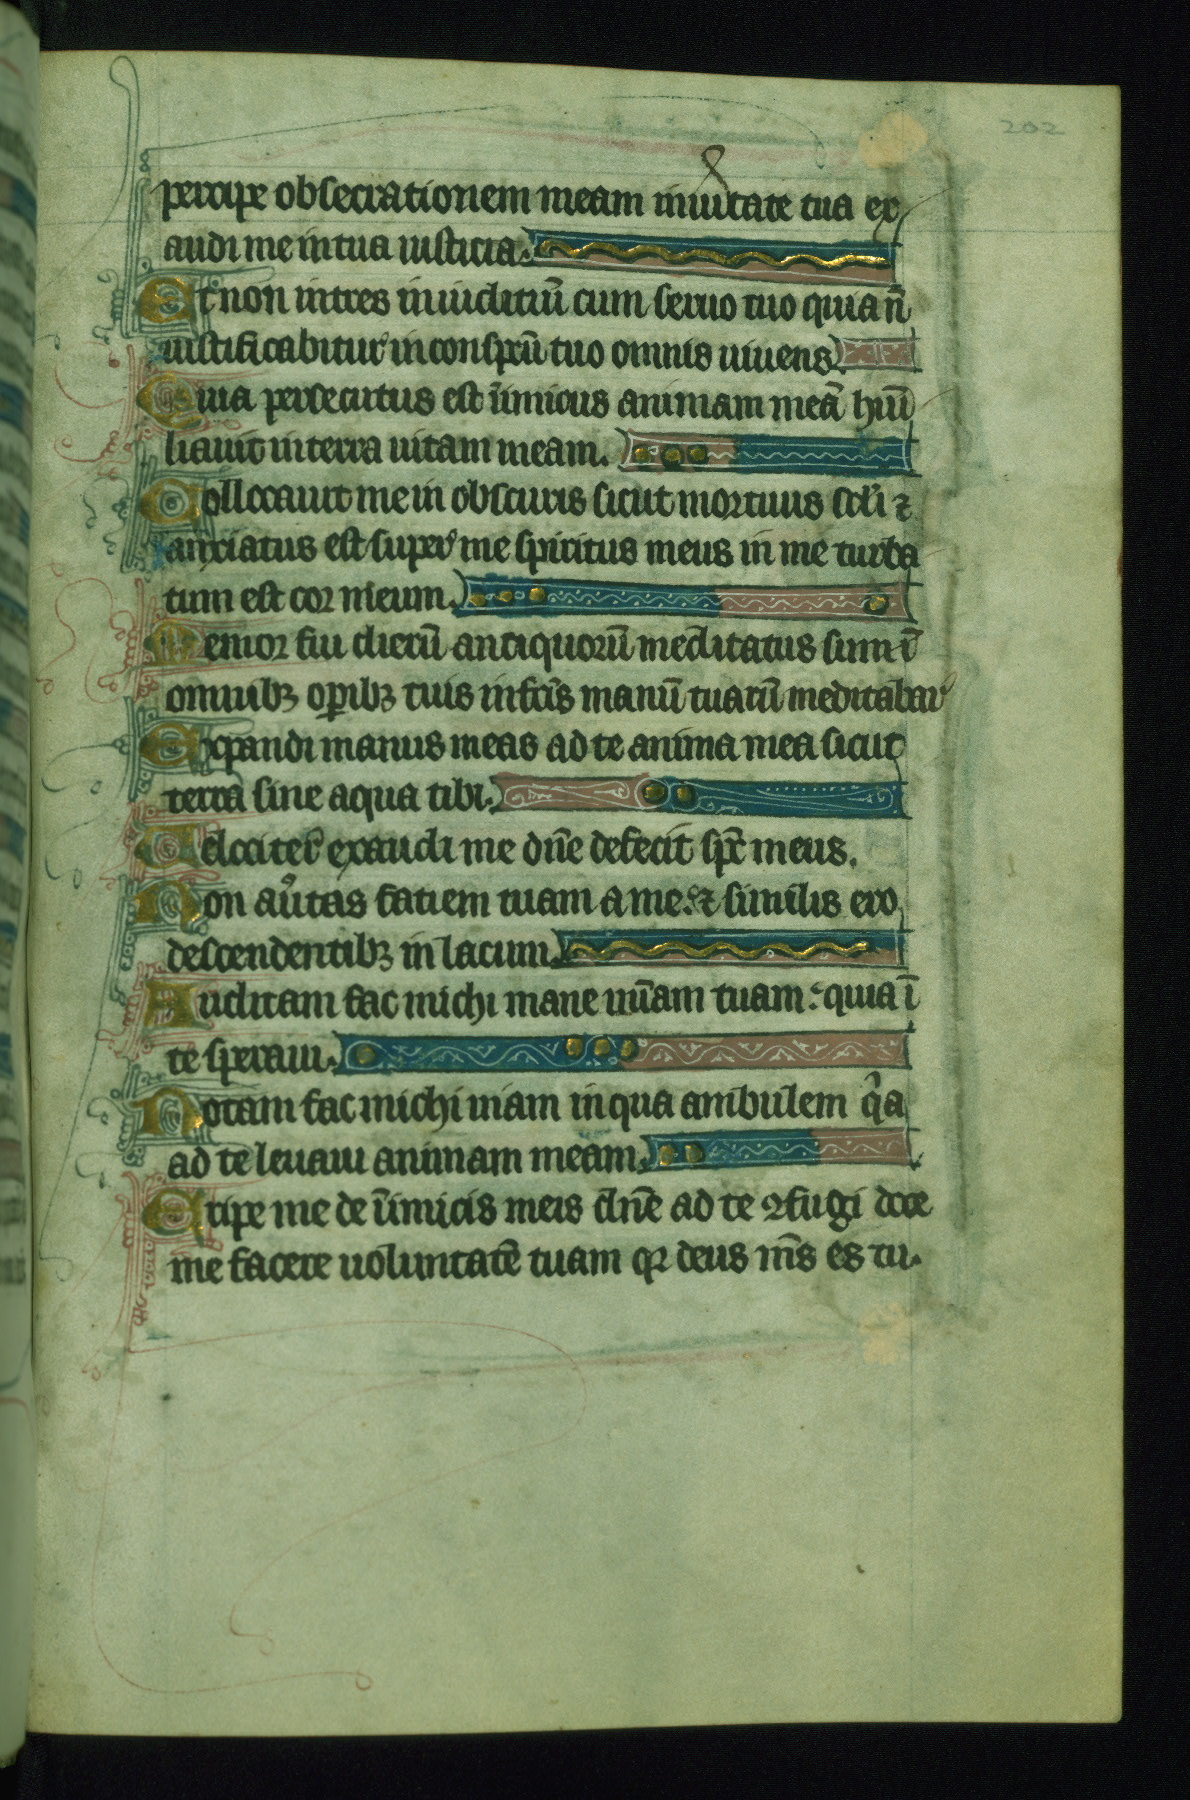 202
percipe obsecrationem meam in uitate tua ex
audi me in tua iusticia.
Et non intres in iuditiū cum seruo tuo quia n̄
iustificabitur in conspcū tuo omnis uiuens.
Quia persecutus est inimicus animam meā hūi
liauit in terra uitam meam.
Collocauit me in obscuris sicut mortuus scli ⁊
anxiatus est super me spiritus meus in me turba
tum est cor meum.
Memor fui dierū antiquorū meditatus sum ī
omnibꝫ oꝑibꝫ tuis in fcīs manū tuarū meditabar
Expandi manus meas ad te anima mea sicut
terra sine aqua tibi.
Uelociter exaudi me dn̄e defecit spc̄ meus.
Non au͛tas fatiem tuam a me: ⁊ similis ero
descendentibꝫ in lacum.
Auditam fac michi mane mīam tuam: quia ī
te speraui.
Notam fac michi uiam in qua ambulem qͥa
ad te leuaui animam meam.
Eripe me de īimicis meis dn̄e ad te ꝯfugi doce
me facere uoluntatē tuam qꝛ deus m̄s es tu.